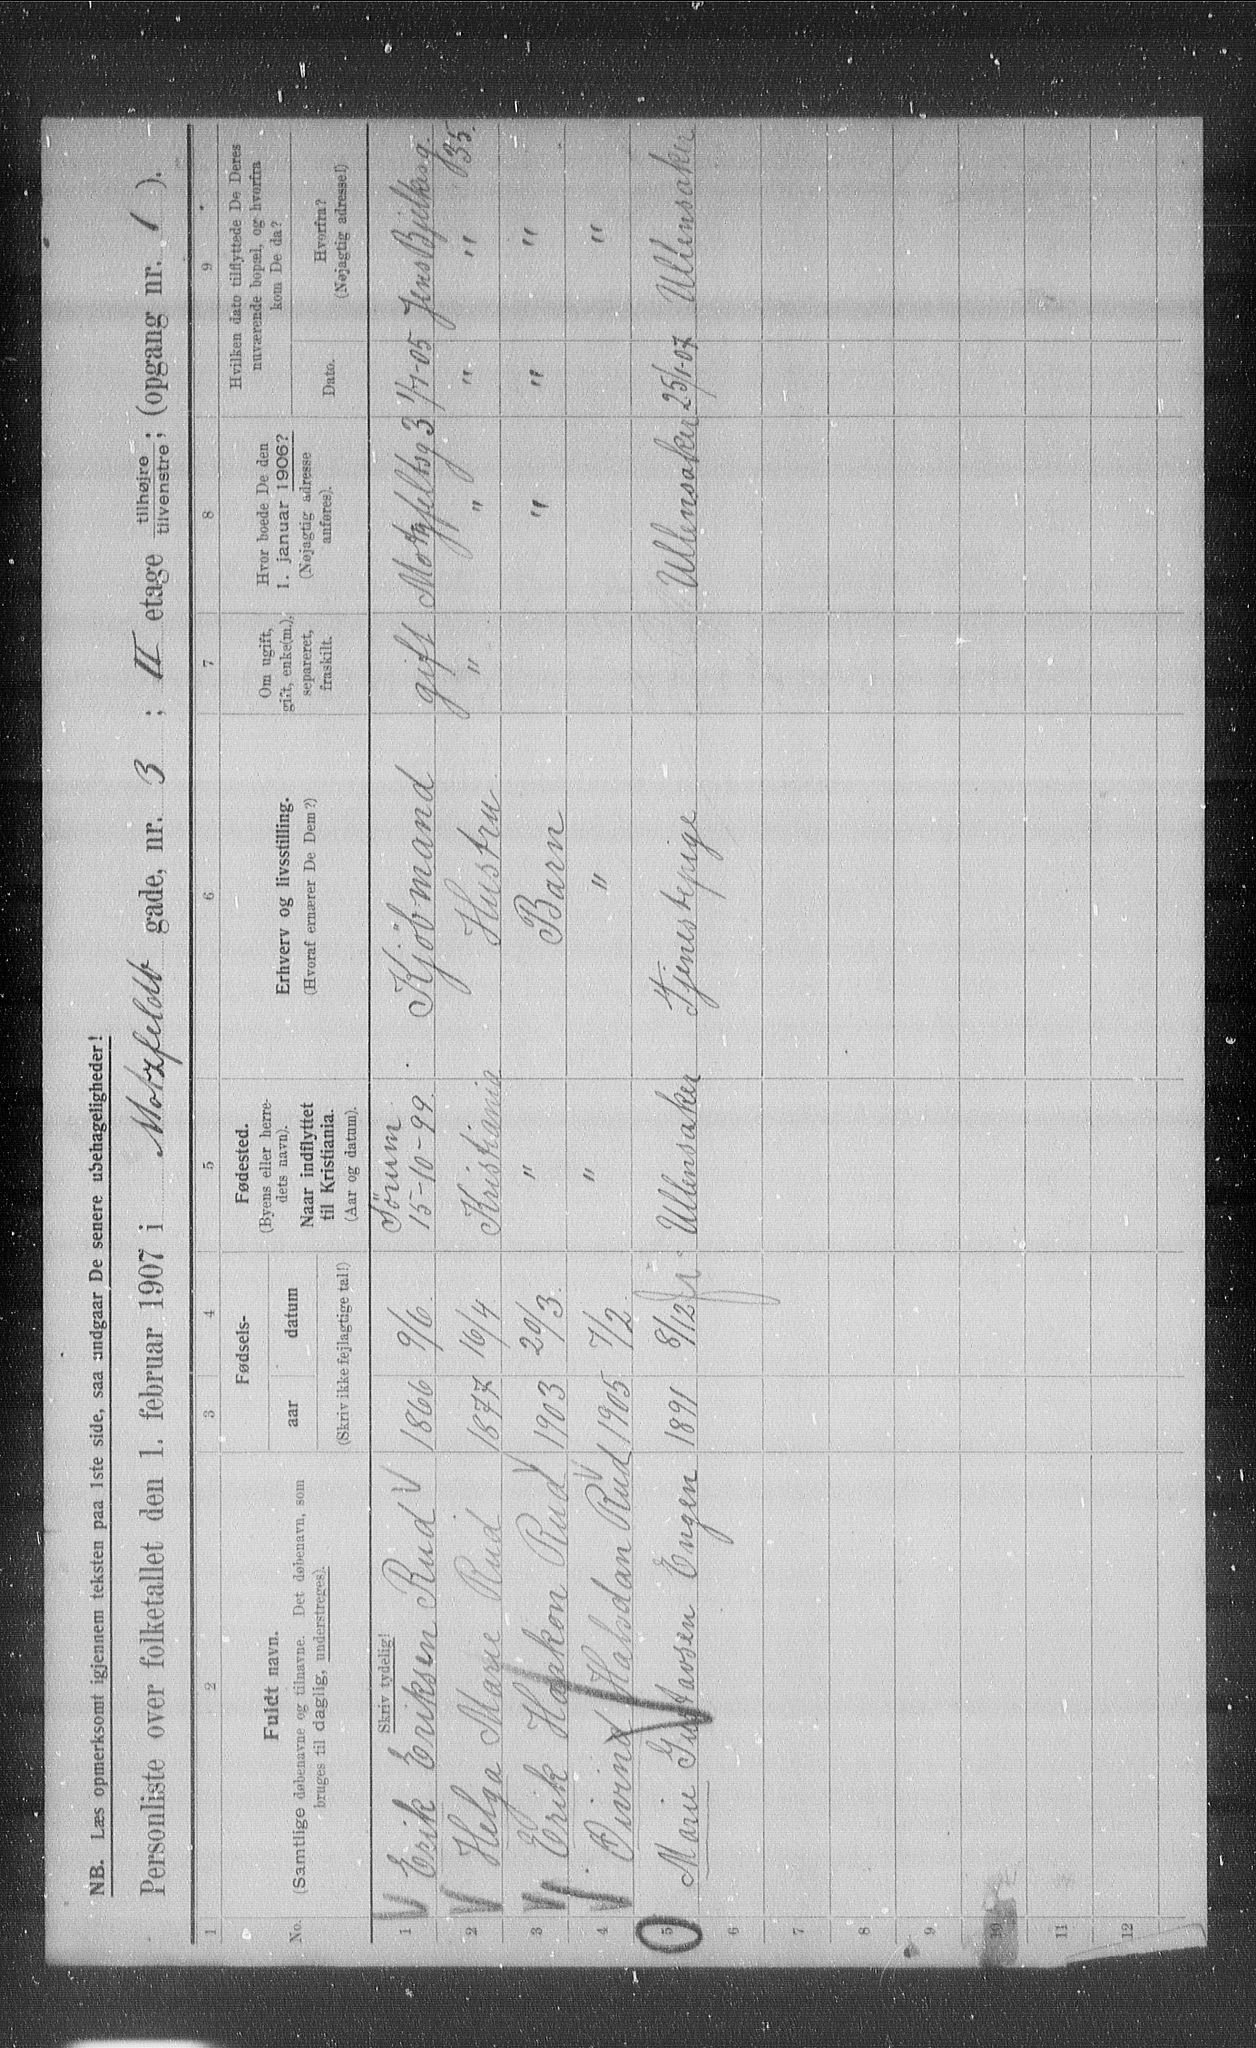 NB. Læs opmerksomt igjennem teksten paa 1ste side, saa undgaar De senere ubehageligheder!
Personliste over folketallet den 1. februar 1907 i Motzfeldt gade, nr. 3 ; II etage tilhøjre/tilvenstre; (opgang nr. 1 ).
1 2 3 4 5 6 7 8 9
No.
Fuldt navn.
(Samtlige døbenavne og tilnavne. Det døbenavn, som
bruges til daglig, understreges).
Fødsels-
aar datum
(Skriv ikke fejlagtige tal!)
Fødested.
(Byens eller herre-
dets navn).
Naar indflyttet
til Kristiania.
(Aar og datum).
Erhverv og livsstilling.
(Hvoraf ernærer De Dem?)
Om ugift,
gift, enke(m.),
separeret,
fraskilt.
Hvor boede De den
1. januar 1906?
(Nøjagtig adresse
anføres).
Hvilken dato tilflyttede De Deres
nuværende bopæl, og hvorfra
kom De da?
Dato.
Hvorfra?
(Nøjagtig adresse!)
Skriv tydelig!
1 Erik Eriksen Rud 1866 9/6 Sörum 15-10-99 Kjöbmand gift Motzfeltsg 3 1/1-05 Jens Bjelkesg. 135.
2 Helga Marie Rud 1877 16/4 Kristiania Hustru " " " "
3 Erik Haakon Rud 1903 20/3. " Barn " " "
4 Eivind Halvdan Rud 1905 7/2. " " "
5 Marie Gustavsen Engen 1891 8/12 Ullensaker Tjenestepige Ullensaker 25/1-07 Ullensaker
6
7
8
9
10
11
12